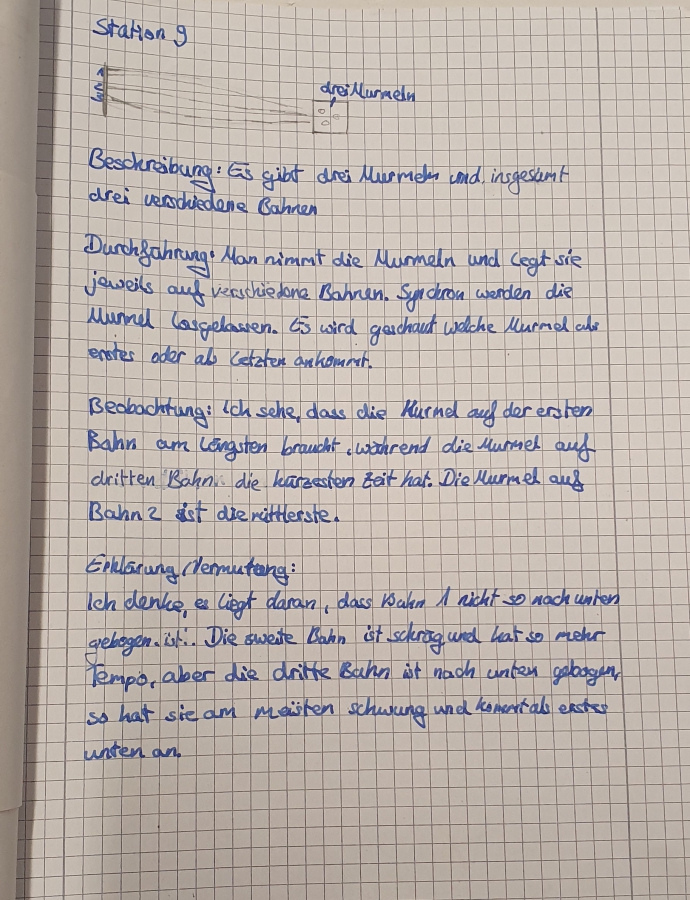 Station 9
drei Murmeln
Beschreibung: Es gibt drei Murmeln und insgesamt
drei verschiedene Bahnen
Durchführung: Man nimmt die Murmeln und legt sie
jeweils auf verschiedene Bahnen. Synchron werden die
Murmel losgelassen. Es wird geschaut welche Murmel als
erstes oder als letzten ankommt.
Beobachtung: Ich sehe, dass die Murmel auf der ersten
Bahn am längsten braucht, während die Murmel auf
dritten Bahn die kürzesten Zeit hat. Die Murmel auf
Bahn 2 ist die mittlerste.
Erklärung/Vermutung:
Ich denke, es liegt daran, dass Bahn 1 nicht so nach unten
gebogen ist. Die zweite Bahn ist schräg und hat so mehr
Tempo, aber die dritte Bahn ist nach unten gebogen,
so hat sie am meisten schwung und kommt als erstes
unten an.